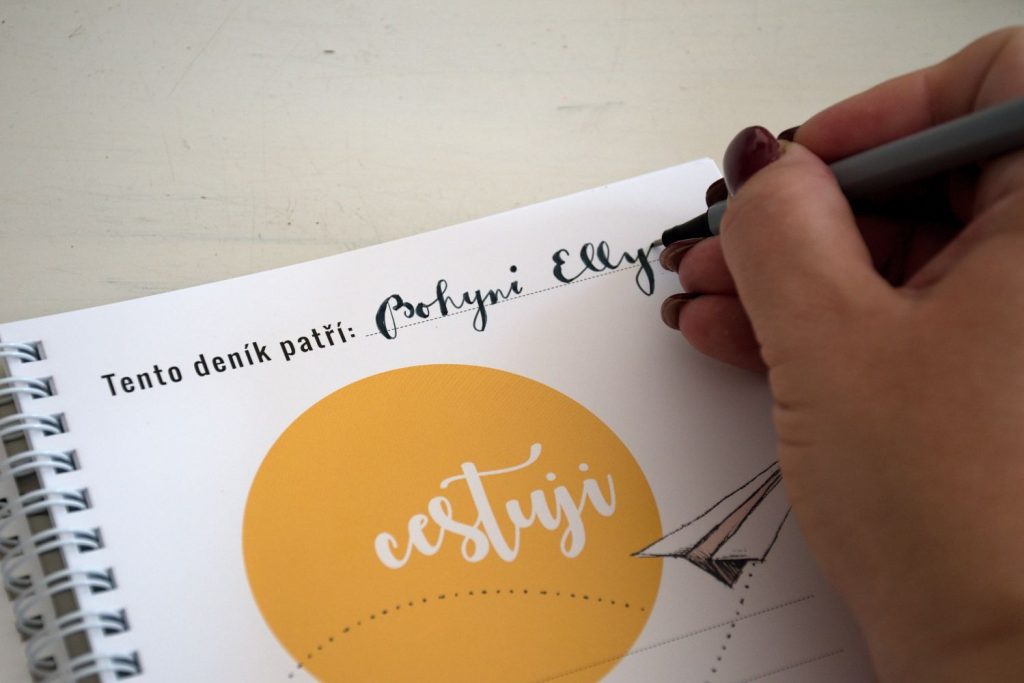 Tento deník patří: Bohyni Elly
cestuji